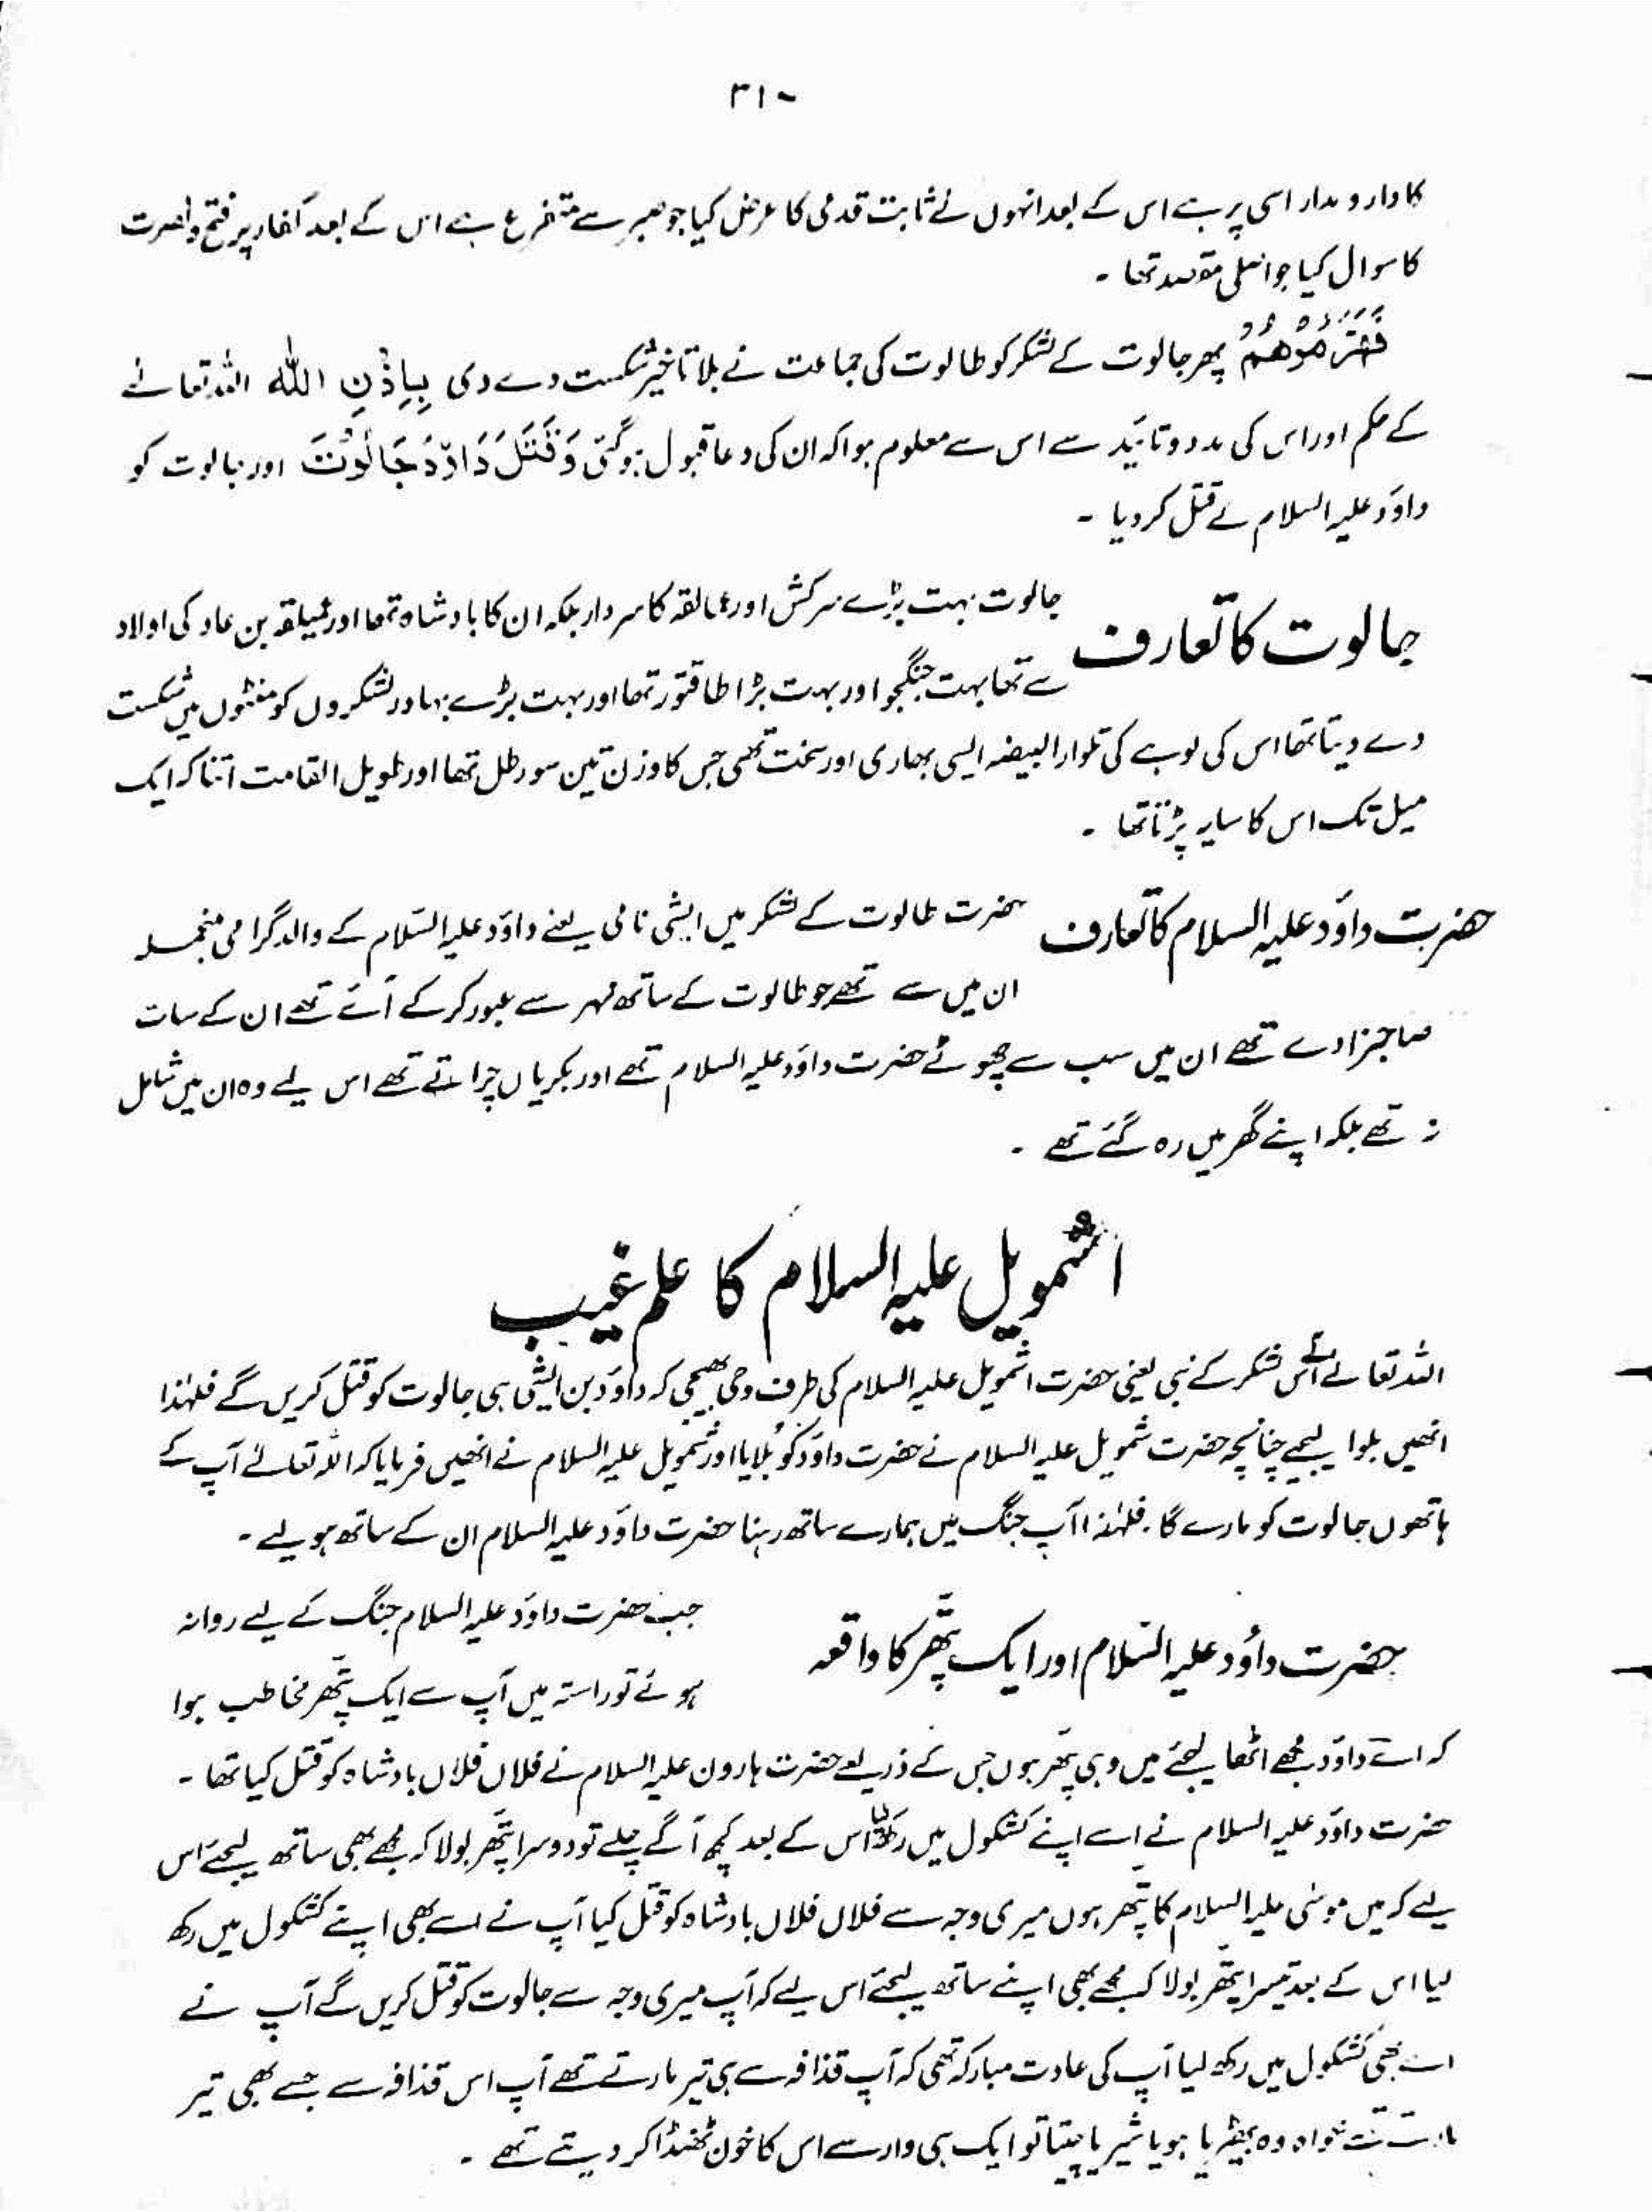 ۳۱۰
کا دارومدار اسی پر ہے اس کے بعد انہوں نے ثابت قدمی کا عرض کیا جو صبر سے متفرع ہے اس کے بعد کفار پر فتح و نصرت
کا سوال کیا جو اصلی مقصد تھا ۔
فَهَزَمُوْهُمْ پھر جالوت کے لشکر کو طالوت کی جماعت نے بلا تاخیر شکست دے دی بِاِذْنِ اللّٰه اللہ تعالےٰ
کے حکم اور اس کی مدد و تائید سے اس سے معلوم ہوا کہ ان کی دعا قبول ہوگئی وَقَتَلَ دَاوٗدُ جَالُوْتَ اور جالوت کو
داؤد علیہ السلام نے قتل کر دیا ۔
جالوت کا تعارف
جالوت بہت بڑے سرکش اور عمالقہ کا سردار بلکہ ان کا بادشاہ تھا اور عملیقہ بن عاد کی اولاد
سے تھا بہت جنگجو اور بہت بڑا طاقتور تھا اور بہت بڑے بہادر لشکروں کو منٹوں میں شکست
دے دیتا تھا اس کی لوہے کی تلوار البیضہ ایسی بھاری اور سخت تھی جس کا وزن تین سو رطل تھا اور طویل القامت اتنا کہ ایک
میل تک اس کا سایہ پڑتا تھا ۔
حضرت داؤد علیہ السلام کا تعارف
حضرت طالوت کے لشکر میں ایشی نامی یعنے داؤد علیہ السلام کے والد گرامی منجملہ
ان میں سے تھے جو طالوت کے ساتھ نہر سے عبور کرکے آئے تھے ان کے سات
صاحبزادے تھے ان میں سب سے چھوٹے حضرت داؤد علیہ السلام تھے اور بکریاں چراتے تھے اس لیے وہ ان میں شامل
نہ تھے بلکہ اپنے گھر میں رہ گئے تھے ۔
اشمویل علیہ السلام کا علم غیب
اللہ تعالےٰ نے اس لشکر کے نبی یعنی حضرت اشمویل علیہ السلام کی طرف وحی بھیجی کہ داؤد بن ایشی ہی جالوت کو قتل کریں گے فلہٰذا
انھیں بلوا لیجیے چنانچہ حضرت شمویل علیہ السلام نے حضرت داؤد کو بُلایا اور شمویل علیہ السلام نے انھیں فرمایا کہ اللہ تعالےٰ آپ کے
ہاتھوں جالوت کو مارے گا۔ فلہٰذا آپ جنگ میں ہمارے ساتھ رہنا حضرت داؤد علیہ السلام ان کے ساتھ ہو لیے ۔
حضرت داؤد علیہ السّلام اور ایک پتّھر کا واقعہ
جب حضرت داؤد علیہ السلام جنگ کے لیے روانہ
ہوئے تو راستہ میں آپ سے ایک پتّھر مخاطب ہوا
کہ اے داؤد مجھے اٹھا لیجئے میں وہی پتھر ہوں جس کے ذریعے حضرت ہارون علیہ السلام نے فلاں فلاں بادشاہ کو قتل کیا تھا ۔
حضرت داؤد علیہ السلام نے اسے اپنے کشکول میں رکھ لیا اس کے بعد کچھ آگے چلے تو دوسرا پتھر بولا کہ مجھے بھی ساتھ لیجئے اس
لیے کہ میں موسٰی علیہ السلام کا پتھر ہوں میری وجہ سے فلاں فلاں بادشاہ کو قتل کیا آپ نے اسے بھی اپنے کشکول میں رکھ
لیا اس کے بعد تیسرا پتھر بولا کہ مجھے بھی اپنے ساتھ لیجئے اس لیے کہ آپ میری وجہ سے جالوت کو قتل کریں گے آپ نے
اسے بھی کشکول میں رکھ لیا آپ کی عادت مبارکہ تھی کہ آپ قذافہ سے ہی تیر مارتے تھے آپ اس قذافہ سے جسے بھی تیر
مارتے تھے خواہ وہ بھیڑیا ہو یا شیر یا چیتا تو ایک ہی وار سے اس کا خون ٹھنڈا کر دیتے تھے ۔